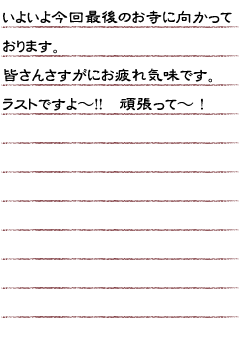 いよいよ今回最後のお寺に向かって
おります。
皆さんさすがにお疲れ気味です。
ラストですよ〜!!　頑張って〜！